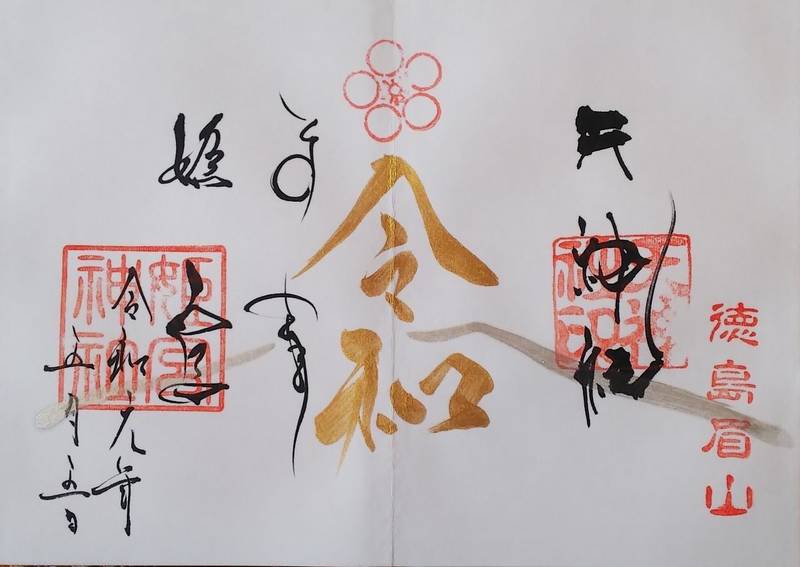 徳島眉山
天神社
令和
姫宮
姫宮神社
令和元年
五月五日